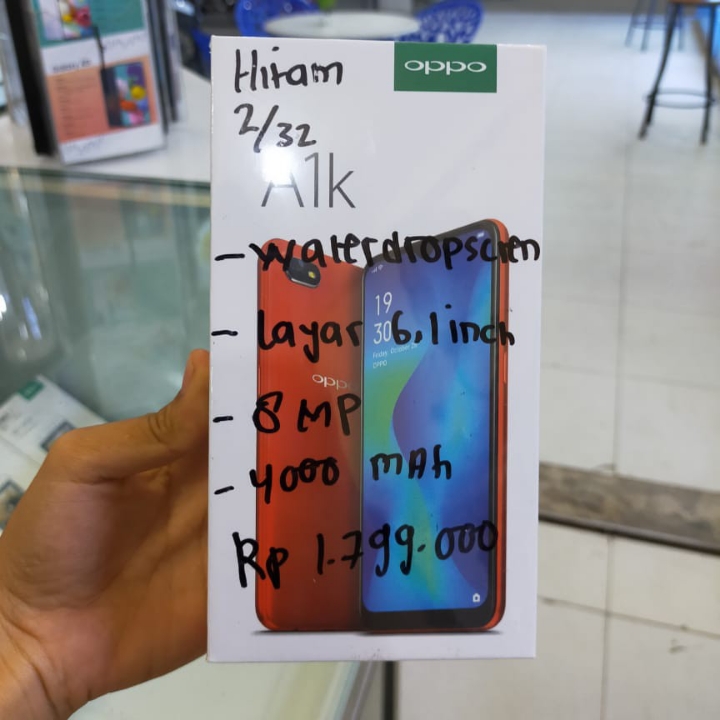 Hitam
oppo
2/32
A1k
- waterdropscren
- Layar 6,1 inch
19
30
oppo
- 8 MP
- 4000 mAh
Rp 1.799.000